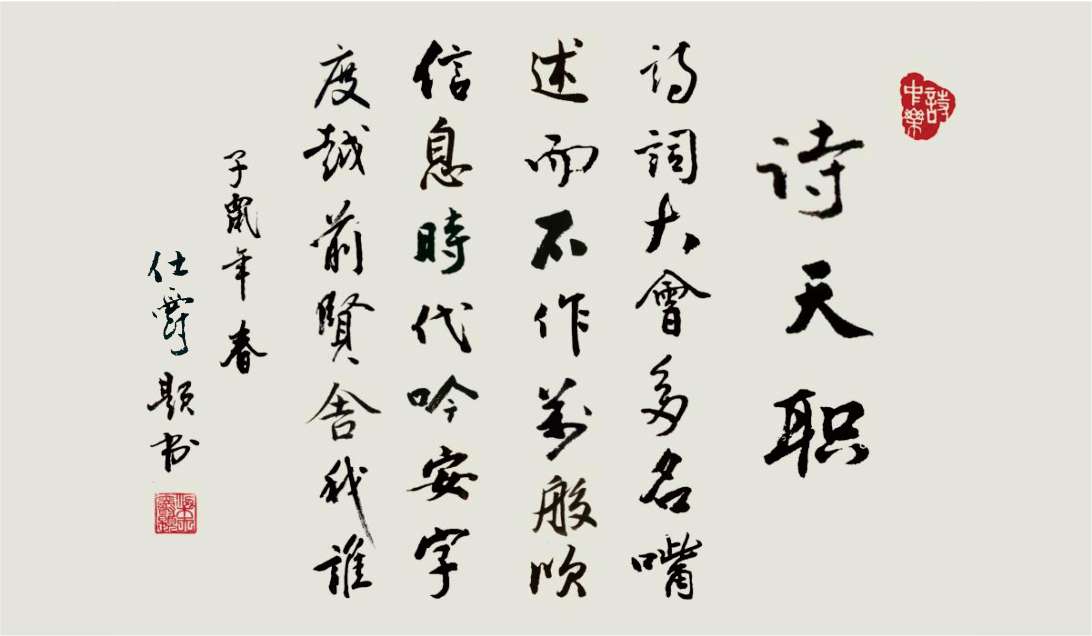 詩中樂
诗天职
詩詞大會多名嘴
述而不作萬般吹
信息時代吟安字
度越前賢舍我誰
子鼠年春
仕爵題书